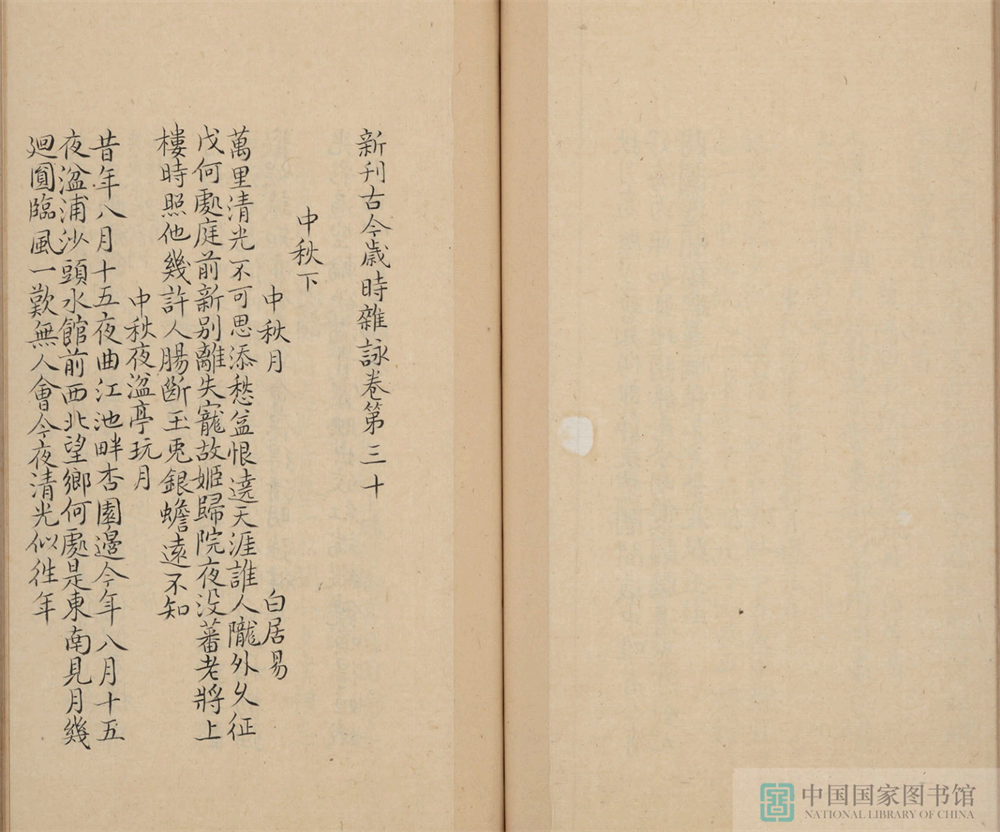 新刊古今歲時雜詠卷第三十
中秋下
中秋月 白居易
萬里清光不可思添愁益恨遶天涯誰人隴外久征
戍何處庭前新别離失寵故姬歸院夜没蕃老將上
樓時照他幾許人腸斷玉兎銀蟾遠不知
中秋夜湓亭玩月
昔年八月十五夜曲江池畔杏園邊今年八月十五
夜湓浦沙頭水館前西北望鄉何處是東南見月幾
廻圓臨風一歎無人會今夜清光似徃年
中国国家图书馆
NATIONAL LIBRARY OF CHINA